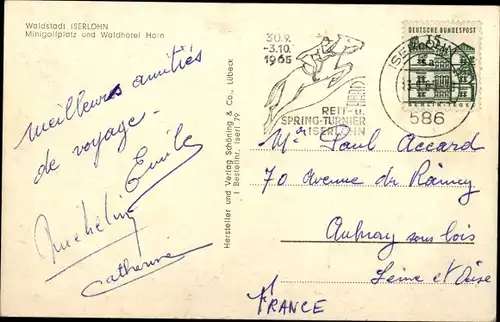 Waldstadt ISERLOHN
Minigolfplatz und Waldhotel Horn
meilleures amitiés
de voyage.
Emile
Micheline
Catherine
Hersteller und Verlag Schöning & Co., Lübeck
30.9.
-3.10.
1965
REIT- u.
SPRING-TURNIER
ISERLOHN
DEUTSCHE BUNDESPOST
15
586
Mr Paul Accard
70 Avenue du Raincy
Aulnay sous bois
Seine et Oise
FRANCE